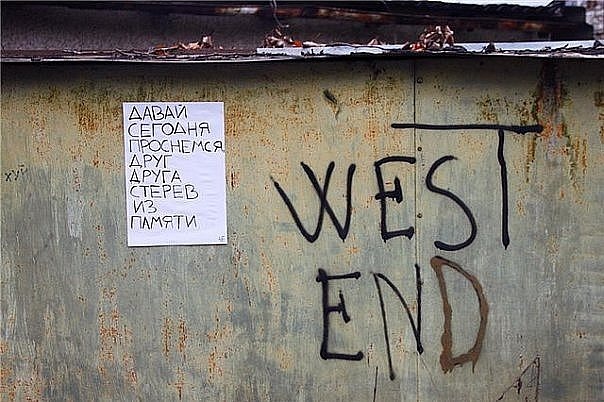 ДАВАЙ
СЕГОДНЯ
ПРОСНЕМСЯ
ДРУГ
ДРУГА
СТЕРЕВ
ИЗ
ПАМЯТИ
ХУЙ
WEST
END